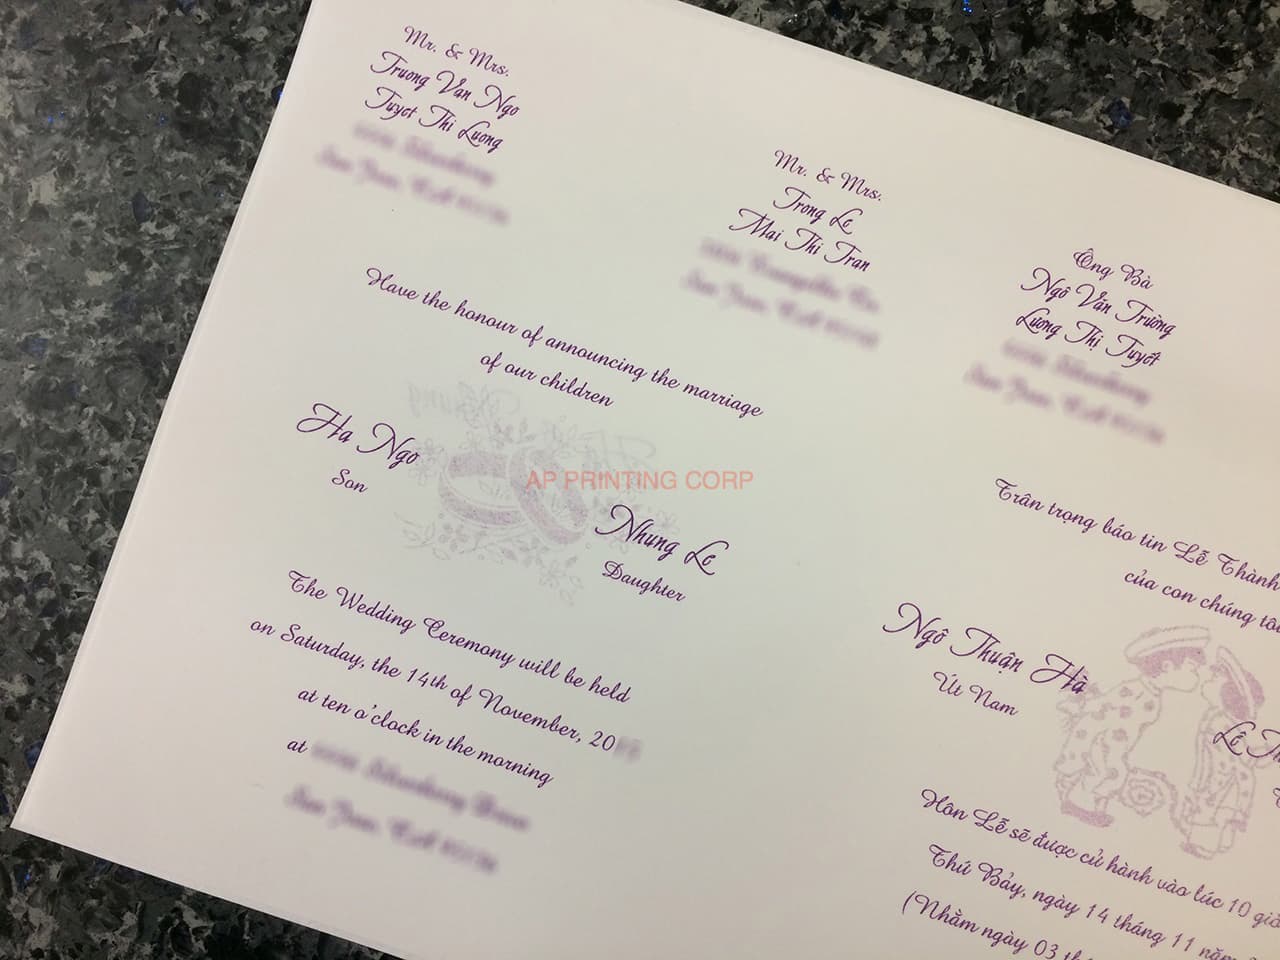 Mr. & Mrs.
Truong Van Ngo
Tuyet Thi Luong
Mr. & Mrs.
Trong Le
Mai Thi Tran
Have the honour of announcing the marriage
of our children
Ha Ngo
Son
Nhung Le
Daughter
The Wedding Ceremony will be held
on Saturday, the 14th of November, 20
at ten o'clock in the morning
at
AP PRINTING CORP
Ông Bà
Ngô Văn Trường
Lương Thị Tuyết
Trân trọng báo tin Lễ Thành
của con chúng tôi
Ngô Thuận Hà
Út Nam
Lê
Hôn Lễ sẽ được cử hành vào lúc 10 giờ
Thứ Bảy, ngày 14 tháng 11 năm
(Nhằm ngày 03